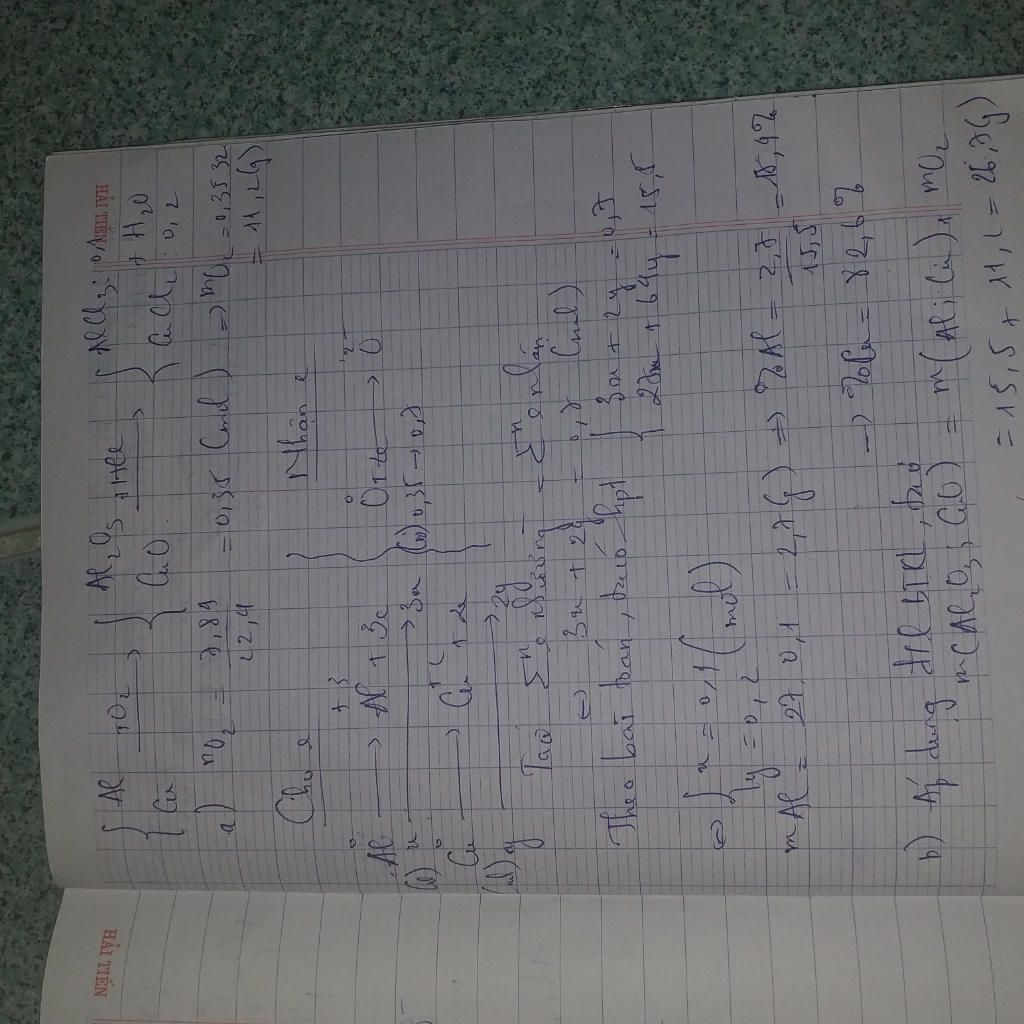 HẢI TIẾN
{ Al +O2 → { Al2O3 +HCl → { AlCl3 : 0,1 + H2O
{ Cu { CuO { CuCl2 : 0,2
a) nO2 = 7,84/22,4 = 0,35 (mol) => mO2 = 0,35.32
= 11,2(g)
Cho e Nhận e
Al⁰ → Al⁺³ + 3e O⁰ + 2e → O²⁻
x → 3x 0,35 → 0,7
Cu⁰ → Cu⁺² + 2e
y → 2y
Σⁿ e nhường = Σⁿ e nhận
<=> 3x + 2y = 0,7 (mol)
Theo bài toán, hpt { 3x + 2y = 0,7
{ 27x + 64y = 15,5
<=> { x = 0,1 (mol)
{ y = 0,2
mAl = 27.0,1 = 2,7(g) => %Al = 2,7/15,5 = 15,4%
→ %Cu = 82,6%
b) Áp dụng ĐL BTKL,
m(Al2O3; CuO) = m(Al; Cu) + mO2
= 15,5 + 11,2 = 26,7(g)
HẢI TIẾN